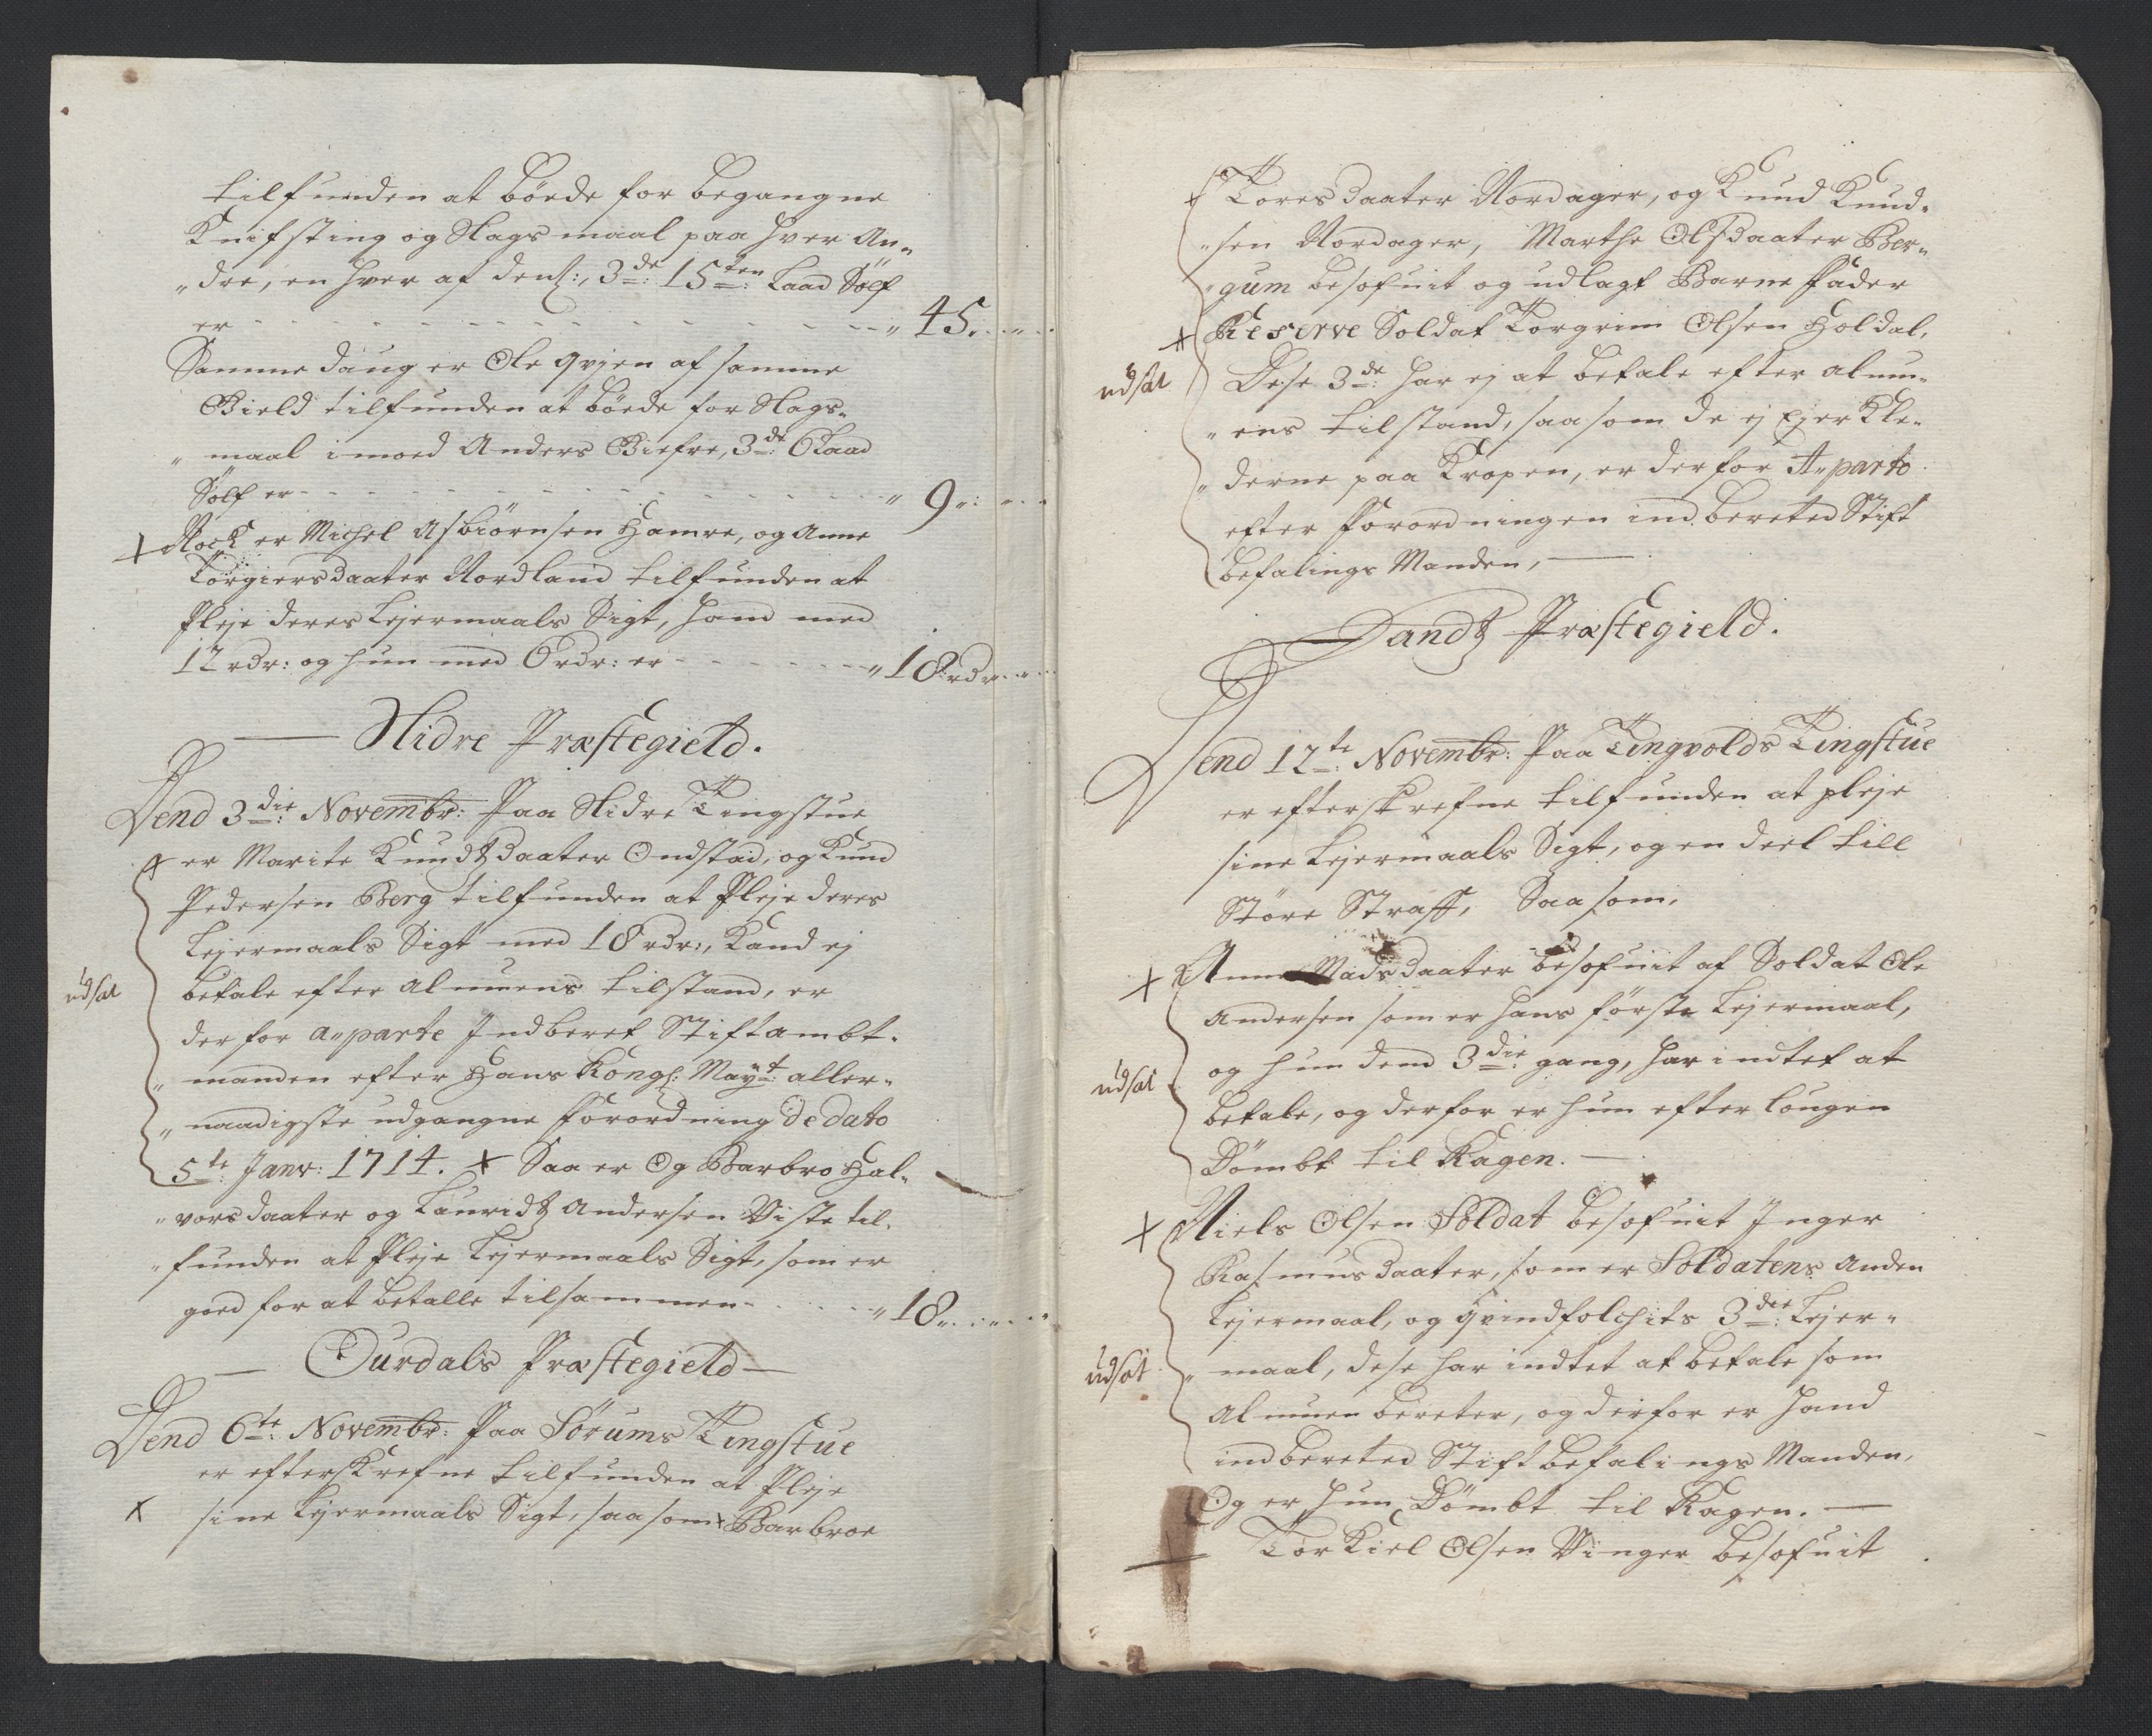 tilfunden at böede for begangne
Knifsting og Slagsmaal paa hver An„
„dre, en hver af dem, 3de: 15ten: Laad Sølf
er - - - - - - - „ 45. „ -
Samme daug er Ole qvien af samme
Gield tilfunden at böede for Slags„
„maal imoed Anders Biefre, 3de: 6 Laad
Sølf er - - - - - - - „ 9 „: „ -
+ Nock er Michel Asbiörnsen Hamre, og Anne
Torgiersdaater Nordland tilfunden at
Pleje deres Lejermaals Sigt, hand med
12 rdr: og hun med 6 rdr: er - - - - „ 18 rdr „ -
Slidre Præstegield.
Dend 3die: Novembr: Paa Slidre Tingstue
+ er Marite Knudtzdaater Ondstad, og Knud
Pedersen Berg tilfunden at Pleje deres
Lejermaals Sigt med 18 rdr:, Kand ej
udsat
betale efter Almuens tilstand, er
derfor a„parte Indberet Stiftambt„
„manden efter Hans Kongl: Mayt: aller„
„naadigste udgangne Forordning de dato
5te: Janv: 1714. + Saa er Og Barbro Hal„
„vorsdaater og Lauridtz Andersen Viste til„
„funden at Pleje Lejermaals Sigt, som er
goed for at betalle tilsammen - - - - „ 18 „ -
Ourdals Præstegield
Dend 6te: Novembr: Paa Sörums Tingstue
er efterskrefne tilfunden at Pleje
+ sine Lejermaals Sigt, saasom + Barbroe
+ Toresdaater Nordager, og Knud Knud„
„sen Nordager, Marthe Olsdaater Ber„
„gum besofuit og udlagt Barne Fader
+ Reserve Soldat Torgrim Olsen Holdal,
udsat
Dese 3de: har ej at betale efter almu„
„ens tilstand, saasom de ej Ejer Kle„
„derne paa Kropen, er derfor A„parto
efter Forordningen indbereted Stift
befalings Manden,
Landtz Præstegield.
Dend 12te: Novembr: Paa Tingvolds Tingstue
er efterskrefne tilfunden at pleje
sine Lejermaals Sigt, og en deel till
Störe Straff, Saasom,
+ Anne Madsdaater besofuit af Soldat Ole
Andersen som er hans förste Lejermaal,
udsat
og hun dend 3die: gang, har indtet at
betale, og derfor er hun efter Lougen
Dömbt til Kagen.
+ Niels Olsen Soldat besofuit Inger
Rasmusdaater, som er Soldatens Anden
Lejermaal, og qvindfolchits 3die: Lejer„
udsat
„maal, dese har indtet at betale som
Almuen bereter, og derfor er hand
indbereted Stiftbefalings Manden,
Og er hun Dömbt til Kagen.
Torkiel Olsen Vinger besofuit